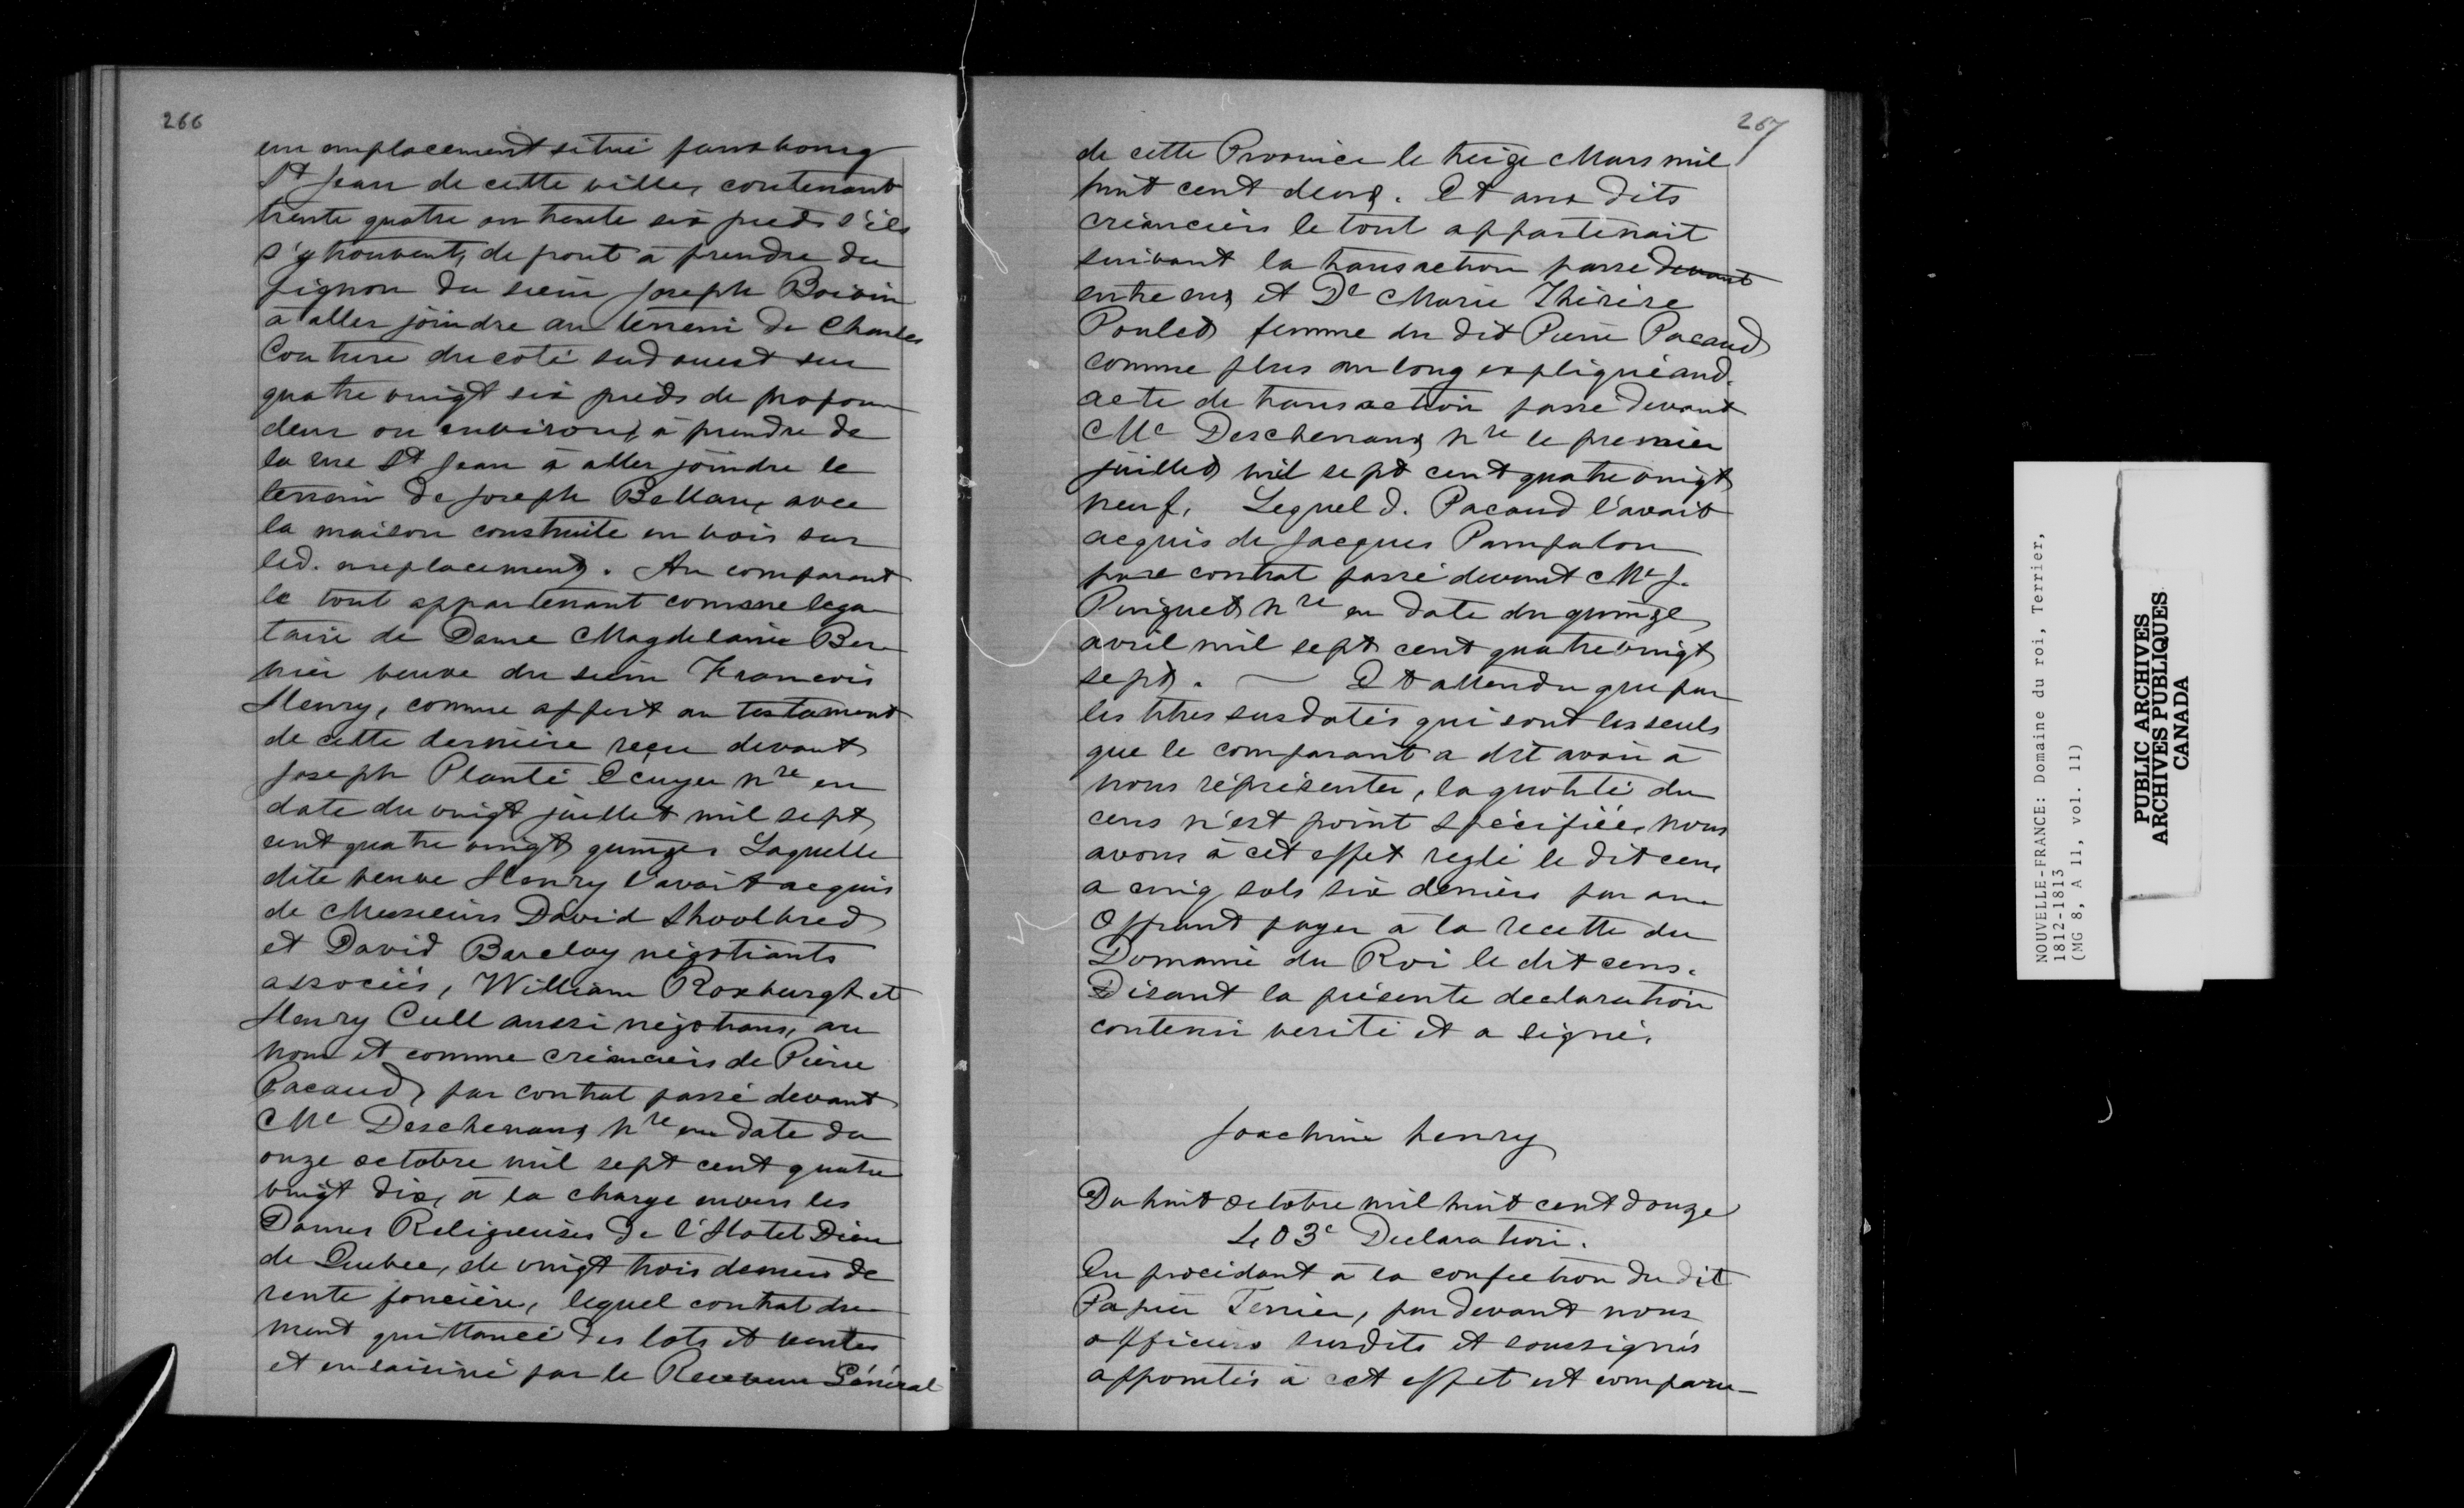 266
un emplacement situé fauxbourg
St Jean de cette ville, contenant
trente quatre ou trente six pieds s'ils
s'y trouvent, de front à prendre du
pignon du sieur Joseph Boivin
a aller joindre au terrein de Charles
Couture du coté sud ouest sur
quatre vingt six pieds de profon
deur ou environ, à prendre de
la rue St Jean à aller joindre le
terrain de Joseph Bettau, avec
la maison construite en bois sur
led. emplacement. Au comparant
le tout appartenant comme lega
taire de Dame Magdelaine Ber
nier veuve du sieur Francois
Henry, comme appert au testament
de cette derniere reçu devant
Joseph Planté Ecuyer nre en
date du vingt juillet mil sept
cent quatre vingt quinze. Laquelle
dite veuve Henry l'avait acquis
de Messieurs David Shoolbred
et David Barclay négotiants
associés, William Roxburgh et
Henry Cull aussi négotians, au
nom et comme créanciers de Pierre
Pacaud, par contrat passé devant
Me Deschenaux nre en date du
onze octobre mil sept cent quatre
vingt dix, à la charge envers les
Dames Religieuses de l'Hotel Dieu
de Quebec, de vingt trois deniers de
rente foncière, lequel contrat due
ment quittancé des lots et ventes
et ensaisiné par le Receveur Général
267
de cette Province le treize Mars mil
huit cent deux. Et aux dits
créanciers le tout appartenait
suivant la transaction passe devant
entre eux et De Marie Thérèse
Poulet femme du dit Pierre Pacaud
comme plus au long expliqué aud.
acte de transaction passé devant
Me Deschenaux nre le premier
juillet mil sept cent quatre vingt
neuf. Lequel d. Pacaud l'avait
acquis de Jacques Pampalon
par contrat passé devant Me J.
Pinguet nre en date du quinze
avril mil sept cent quatre vingt
sept. — Et attendu que par
les titres susdatés qui sont les seuls
que le comparant a dit avoir à
nous réprésenter, la quotité du
cens n'est point spécifiée, nous
avons à cet effet reglé le dit cens
a cinq sols six deniers par an.
Offrant payer a la recette du
Domaine du Roi le dit cens.
Disant la présente declaration
contenir verité et a signé.
Joachim henry
Du huit octobre mil huit cent douze
403e Declaration.
En procédant a la confection du dit
Papier Terrier, par devant nous
officiers susdits et soussignés
appointés à cet effet est comparu
NOUVELLE-FRANCE: Domaine du roi, Terrier,
1812-1813
(MG 8, A 11, vol. 11)
PUBLIC ARCHIVES
ARCHIVES PUBLIQUES
CANADA